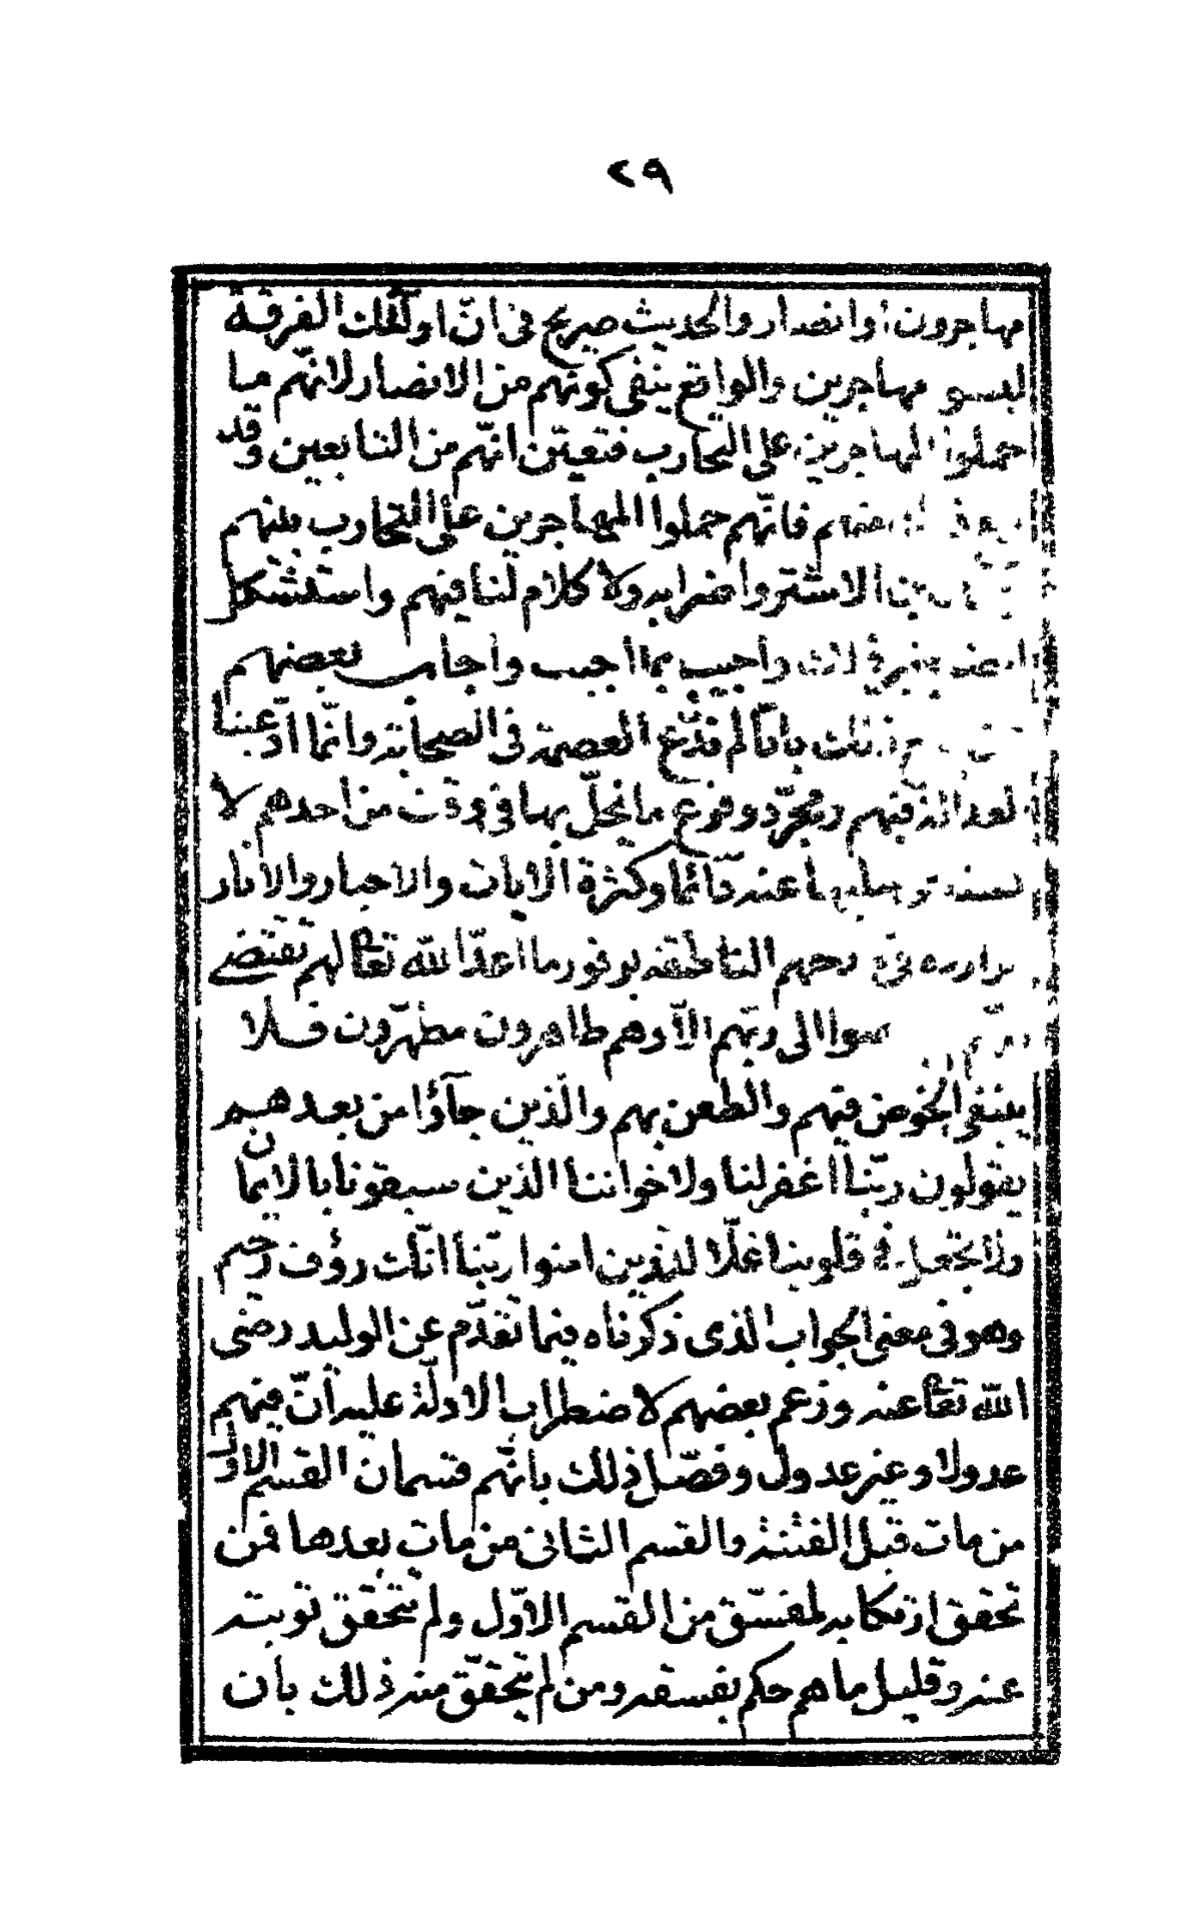 ٢٩
مهاجرون أو انصار والحديث صريح فى انّ اولٓئك الفرقة
ليسو مهاجرين والواقع ينفى كونهم من الانصار لانهّم ما
حملوا المهاجرين على التحارب فتعيّن انهّم من التابعين وقد
فانّهم حملوا المهاجرين على التحارب بينهم
الاشتر واضرابه ولا كلام لنا فيهم واستشكل
واجيب بما اجيب واجاب بعضهم
ذلك بانّا لم ندّع العصمة فى الصحابة وانّما ادّعينا
فيهم ومجرّد وقوع ما يخلّ بها فى وقت من احدهم لا
عنه دآئما وكثرة الايات والاخبار والاثار
الناطقة بوفور ما اعدّ الله تعالى لهم تقتضى
الى ربّهم الاّ وهم طاهرون مطهّرون فلا
ينبغى الخوض فيهم والطعن بهم والّذين جآؤا من بعدهم
يقولون ربّنا اغفرلنا ولاخواننا الذين سبقونا بالايمان
ولا تجعل فى قلوبنا غلّا للذين امنوا ربّنا انّك رؤف رحيم
وهو فى معنى الجواب الذى ذكرناه فيما تقدّم عن الوليد رضى
الله تعالى عنه وزعم بعضهم لاضطراب الادلّة عليه أنّ فيهم
عدولا وغير عدول وفصّل ذلك بانّهم قسمان القسم الاول
من مات قبل الفتنة والقسم الثانى من مات بعدها فمن
تحقق ارتكابه لمفسّق من القسم الاوّل ولم تتحقق توبته
عنه وقليل ما هم حكم بفسقه ومن لم يتحقّق منه ذلك بأن